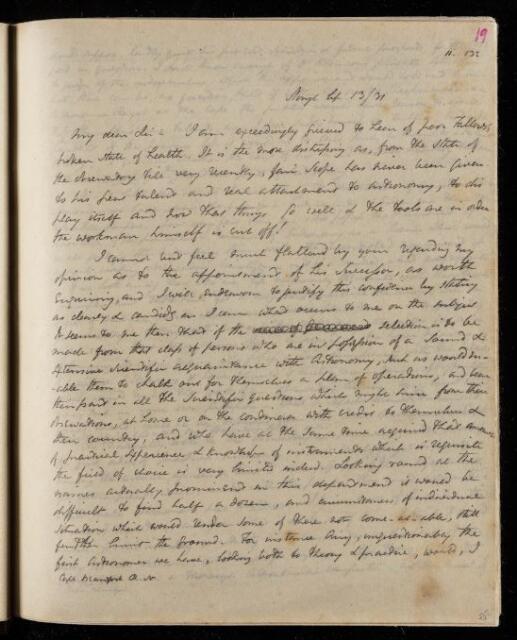 19
11. 132
Slough Sep 13/31
My dear Sir I am exceedingly grieved to hear of poor Fallows's
broken state of health. It is the more distressing as, from the state of
the Observatory till very recently, fair scope has never been given
to his great talent and real attachment to astronomy, to dis
play itself and now that things go well & the tools are in order
the workman himself is cut off!
I cannot but feel much flattered by your regarding my
opinion as to the appointment of his successor, as worth
enquiring, and I will endeavour to justify this confidence by stating
as clearly & candidly as I can what occurs to me on the subject
It seems to me then that if the selection is to be
made from that class of persons who are in possession of a sound &
extensive scientific acquaintance with Astronomy, such as would en-
able them to chalk out for themselves a plan of operations, and bear
their part in all the Scientific questions which might arise from their
observations, at home or on the continent with credit to themselves &
their country, and who have at the same time acquired that amount
of practical experience & knowledge of instruments which is requisite
the field of choice is very limited indeed. Looking round at the
names actually prominent in this department it would be
difficult to find half a dozen, and circumstances of individual
situation which would render some of these not come-at-able, still
further limit the ground. For instance Airy, unquestionably the
first Astronomer we have, looking both to theory & practice, would, I
Capt Beaufort R. N.